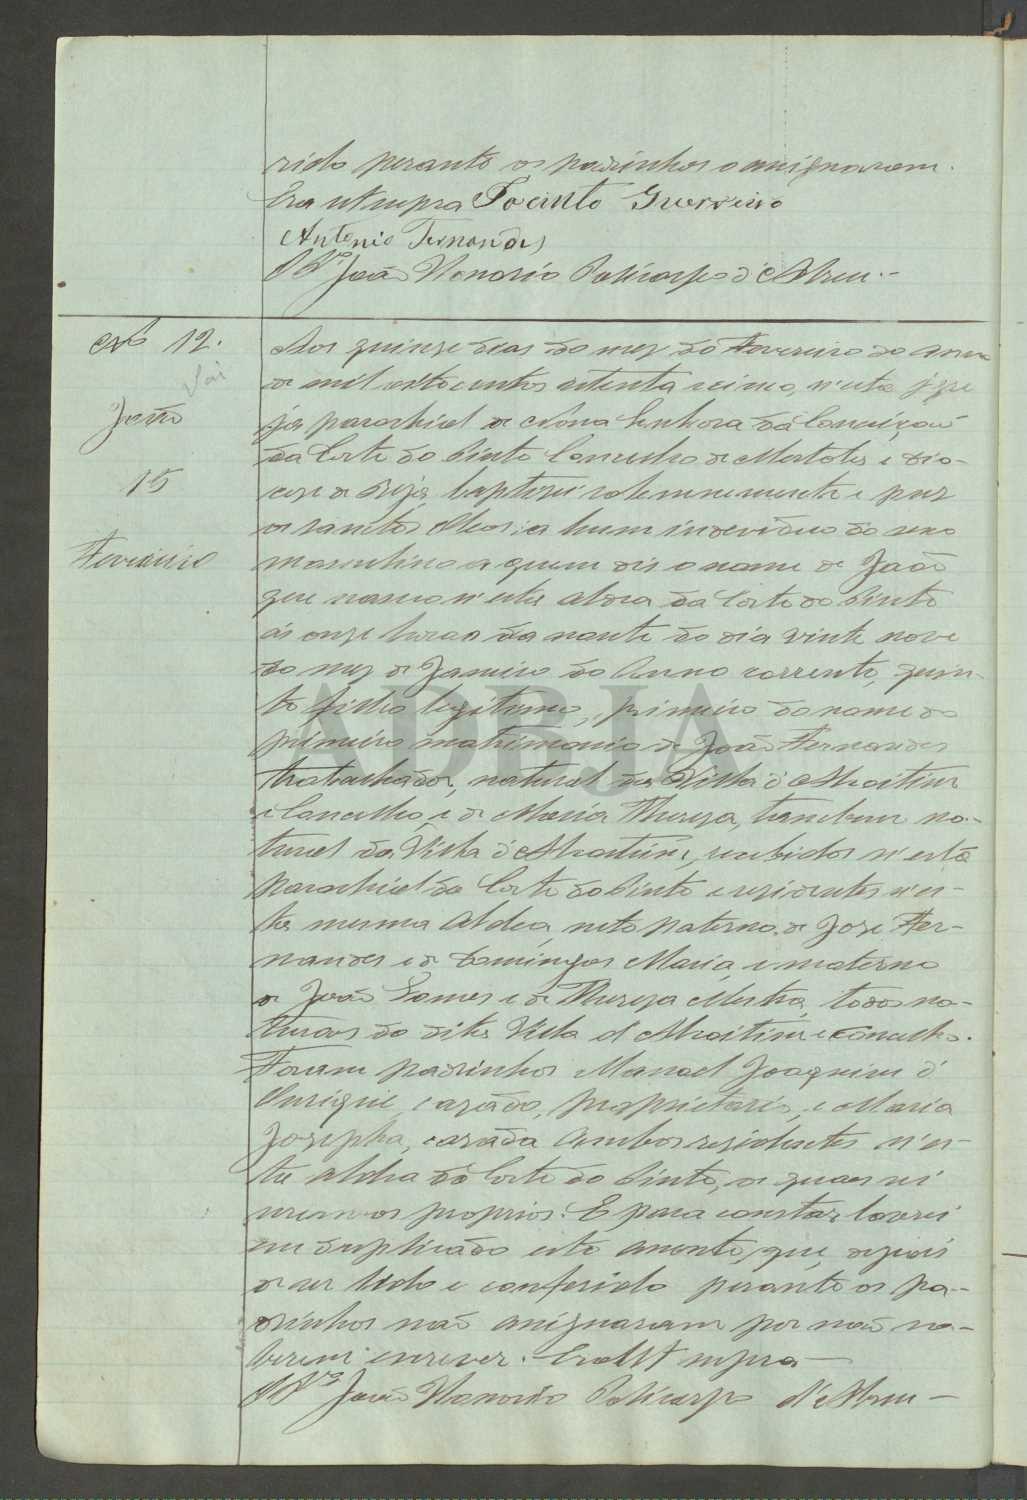 rido perante os padrinhos o assignaram.
Era ut supra Jacinto Guerreiro
Antonio Fernandes
O Pr. João Honorio Policarpo d'Abreu.-
Nº 12.
João
15
Fevereiro
Aos quinze dias do mez de Fevereiro do anno
de mil oitocentos setenta e cinco, n'esta Igre
ja parochial de Nossa Senhora da Conceição
da Corte do Pinto Concelho de Mertola e Dio-
cese de Beja baptizei solemnemente e puz
os santos Oleos a hum individuo do sexo
masculino a quem dei o nome de João
que nasceu n'esta Aldea da Corte do Pinto
ás onze horas da noute do dia vinte nove
do mez de Janeiro do Anno corrente, quin-
to filho legitimo, primeiro do nome do
primeiro matrimonio de João Fernandes
trabalhador, natural da Villa d'Alcoitim
e Concelho, e de Maria Thereza, tambem na-
tural da Villa d'Alcoitim, recebidos n'esta
Parochial da Corte do Pinto e rezidentes n'es-
ta mesma Aldea, neto paterno de José Fer-
nandes e de Domingas Maria, e materno
de João Gomes e de Thereza Mestra, todos na-
turaes da dita Villa d'Alcoitim e Concelho.
Foram padrinhos Manoel Joaquim d'
Ourique, cazado, proprietario, e Maria
Josepha, cazada ambos rezidentes n'es-
ta aldea da Corte do Pinto, os quaes sei
serem os proprios. E para constar lavrei
em duplicado este assento, que, depois
de ser lido e conferido perante os pa-
drinhos não assignaram por não sa-
berem escrever. Era Ut supra—
O Pr. João Honorio Policarpo d'Abreu—
ADBJA